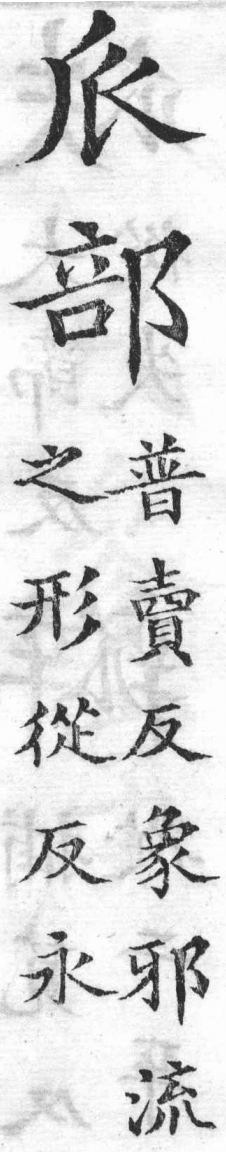 𠂢部
普賣反象邪流
之形從反永